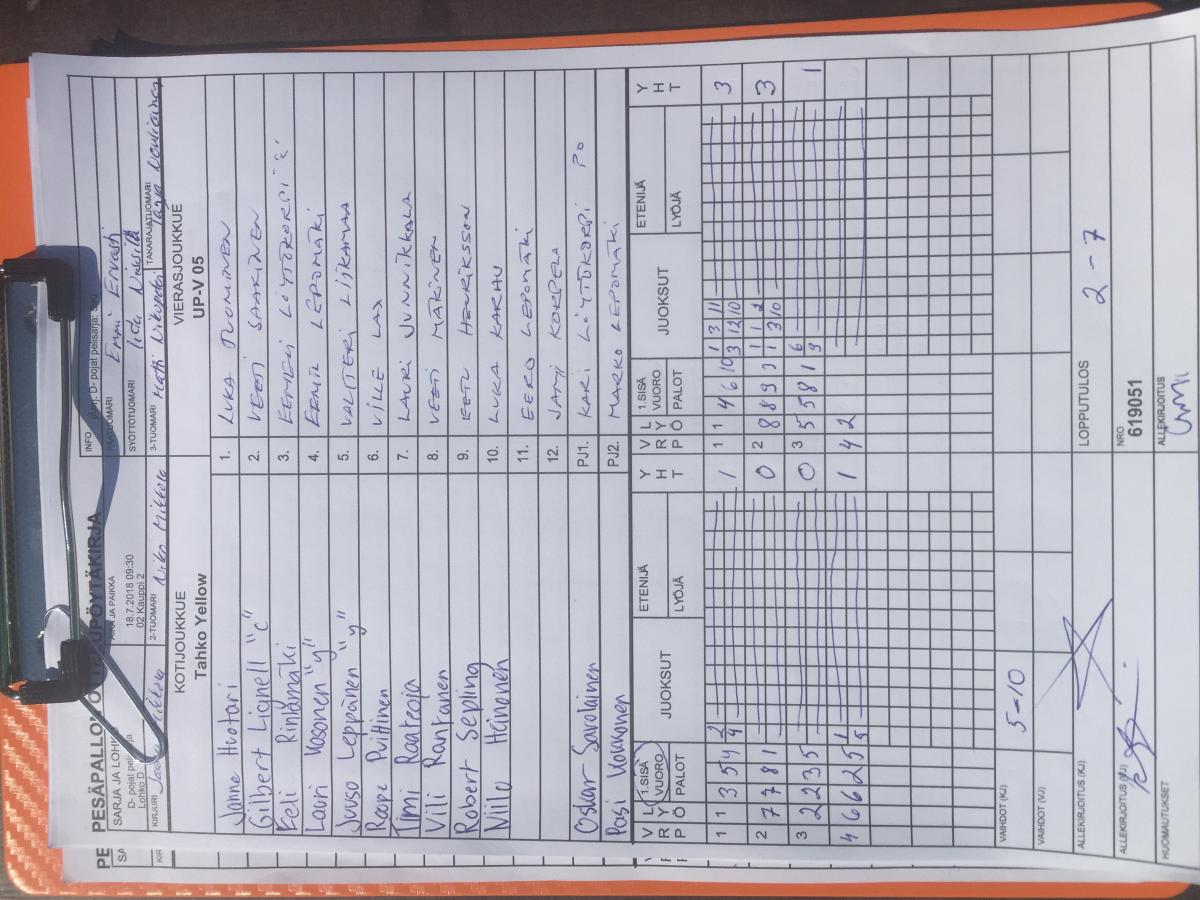 PESÄPALLON OTTELUPÖYTÄKIRJA
SARJA JA LOHKO
D- pojat
Lohko D
AIKA JA PAIKKA
18.7.2018 09:30
02 Kauppi 2
INFO
D- pojat pelisarjat
Enni Ervasti
SYÖTTÖTUOMARI
Iida
KIRJURI
2-TUOMARI Niko Mikkola
3-TUOMARI Matti
TAKARAJATUOMARI
KOTIJOUKKUE
Tahko Yellow
VIERASJOUKKUE
UP-V 05
Janne Huotari 1. LUKA TUOMINEN
Gilbert Lignell "C" 2. VEETI SAARINEN
Eeli Rintamäki 3. EEMELI LÖYTÖKORPI "C"
Lauri Vosonen "y" 4. EEMIL LEPOMÄKI
Juuso Leppänen "y" 5. VALTTERI LIIKAMAA
Roope Puttinen 6. VILLE LAX
Timi Raateoja 7. LAURI JUNNIKKALA
Vili Rantanen 8. VEETI MÄKINEN
Robert Sepling 9. EETU HENRIKSSON
Niilo Heinonen 10. LUKA KARHU
11. EERO LEPOMÄKI
12. JANI KORPELA
Oskar Savolainen PJ1. KARI LÖYTÖKORPI PO
Pasi PJ2. MARKO LEPOMÄKI
V P L R Ö Y 1.SISÄ VUORO PALOT JUOKSUT ETENIJÄ LYÖJÄ Y H T V P L R Ö Y 1.SISÄ VUORO PALOT JUOKSUT ETENIJÄ LYÖJÄ Y H T
1 1 3 5 4 2 4 1 1 1 4 6 10 1 3 11 3 12 10 3
2 7 7 8 1 0 2 8 8 9 3 1 1 2 1 3 10 3
3 2 2 3 5 0 3 5 5 8 1 6 9 1
4 6 6 2 5 1 5 1 4 2
VAIHDOT (KJ) 5-10
VAIHDOT (VJ)
ALLEKIRJOITUS (KJ)
LOPPUTULOS 2 - 7
ALLEKIRJOITUS (VJ)
NRO
619051
HUOMAUTUKSET
ALLEKIRJOITUS